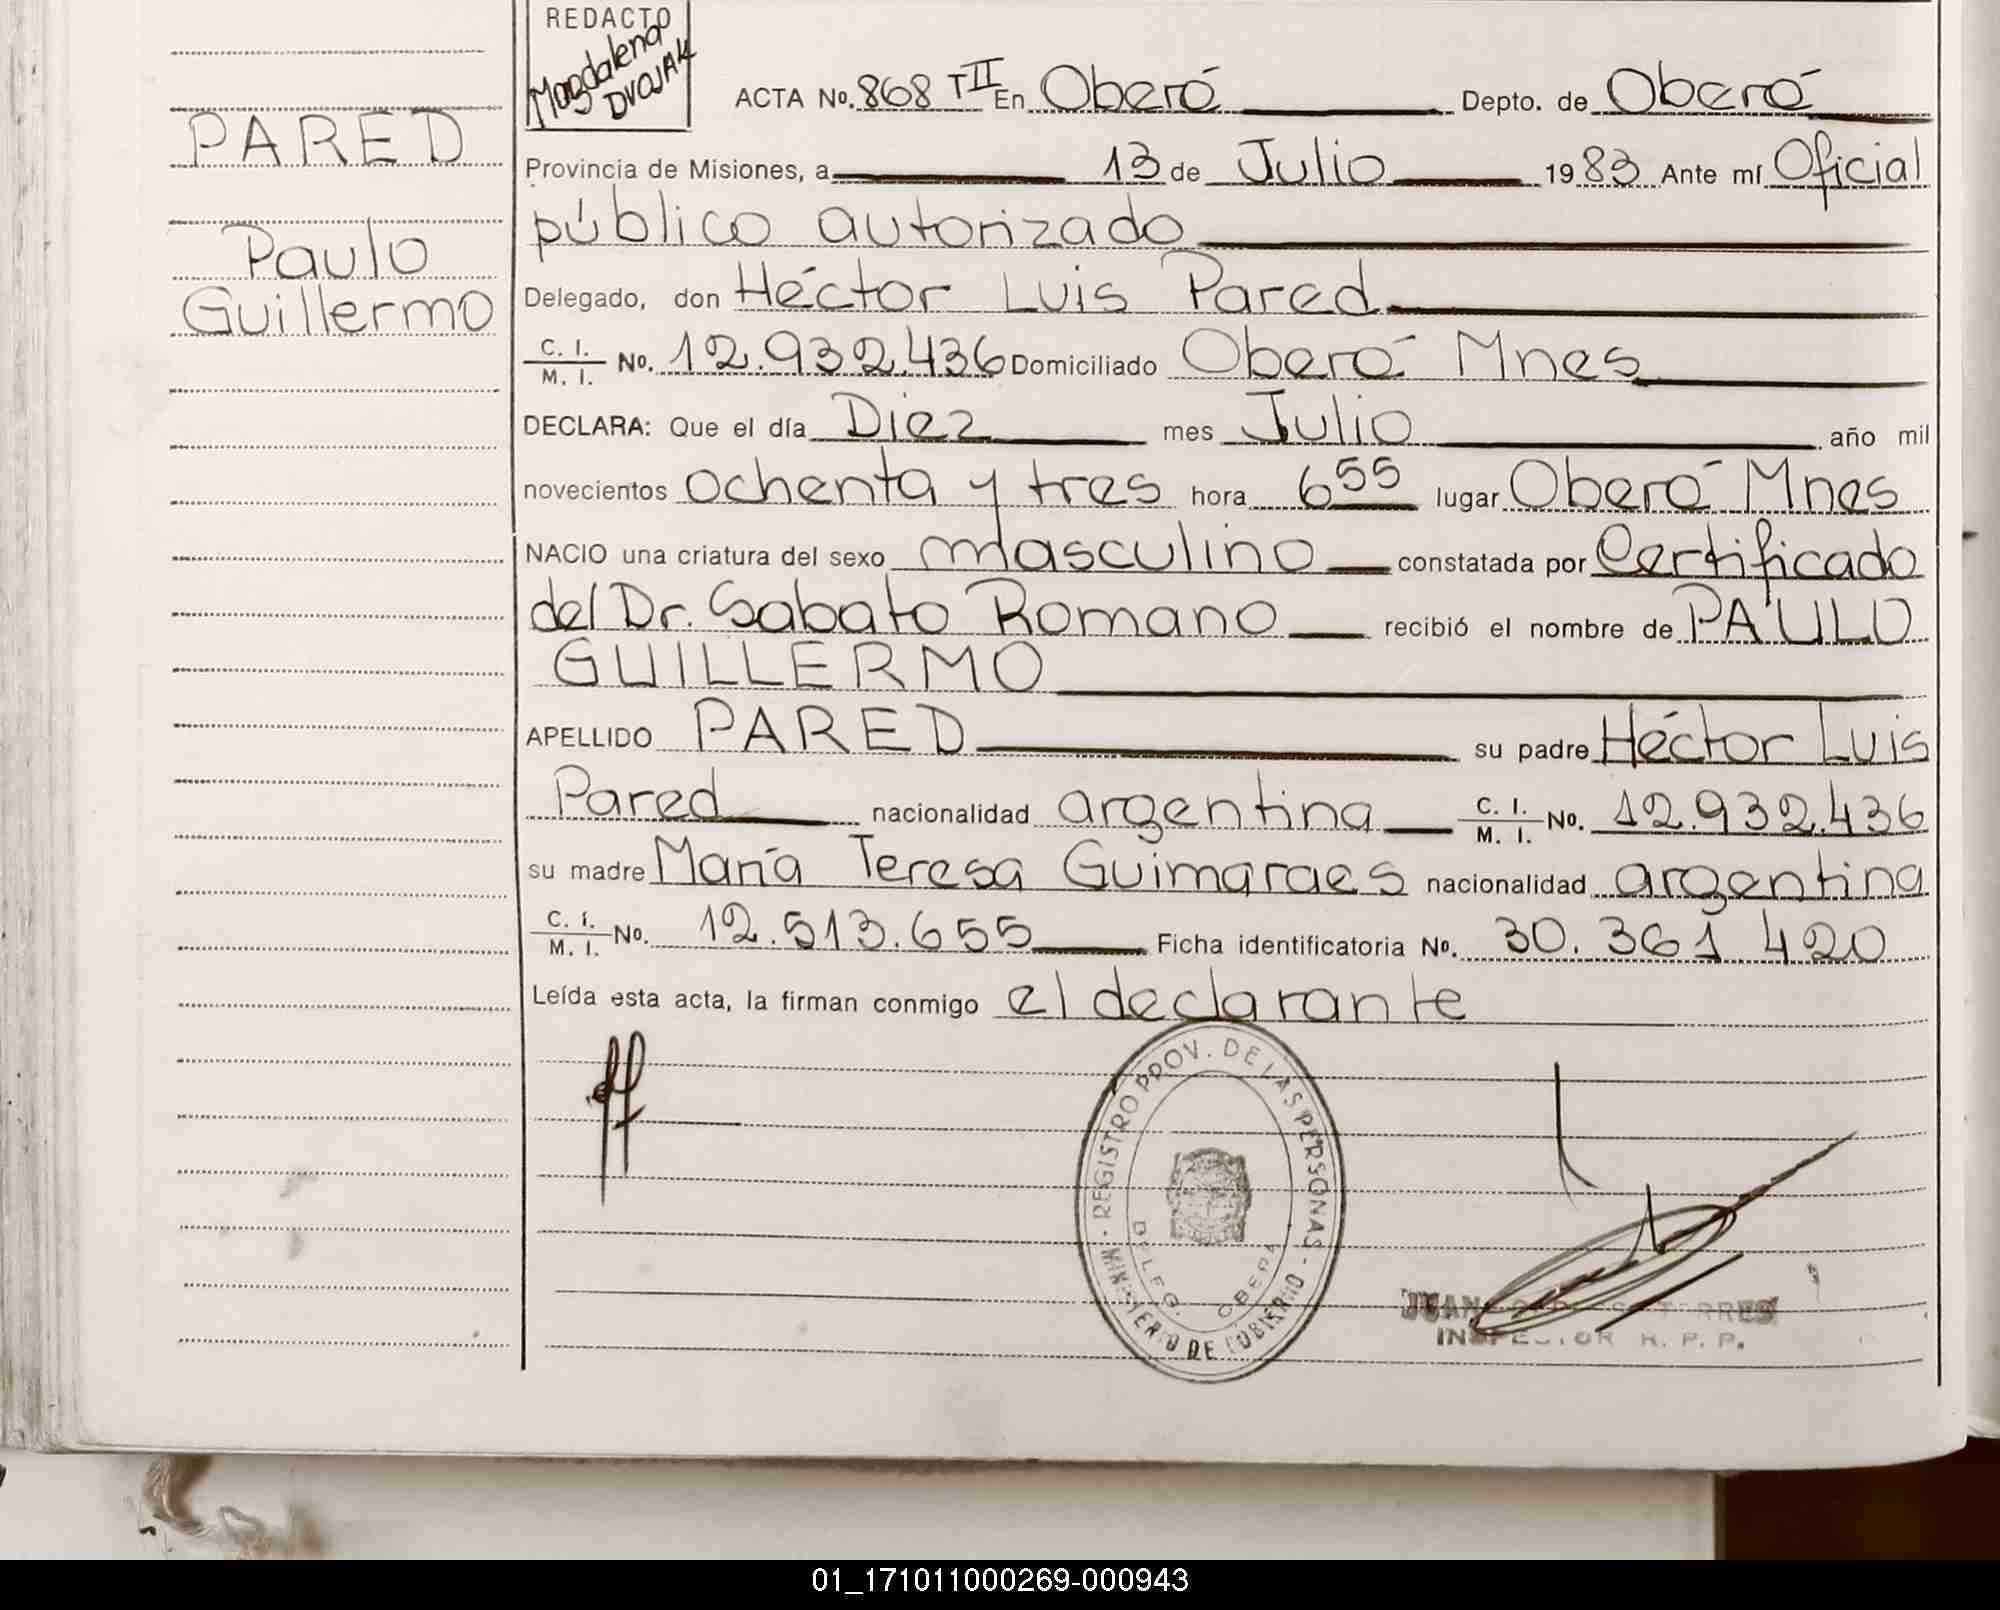 REDACTO
Magdalena
DVOJAK
PARED
Paulo
Guillermo
ACTA No. 868 TII En Oberá Depto. de Oberá
Provincia de Misiones, a 13 de Julio 1983 Ante mí Oficial
público autorizado
Delegado, don Héctor Luis Pared
C. I. / M. I. No. 12.932.436 Domiciliado Oberá Mnes
DECLARA: Que el día Diez mes Julio año mil
novecientos ochenta y tres hora 6 55 lugar Oberá Mnes
NACIO una criatura del sexo masculino constatada por Certificado
del Dr. Sabato Romano recibió el nombre de PAULO
GUILLERMO
APELLIDO PARED su padre Héctor Luis
Pared nacionalidad argentina C. I. / M. I. No. 12.932.436
su madre María Teresa Guimaraes nacionalidad argentina
C. I. / M. I. No. 12.513.655 Ficha identificatoria No. 30.361 420
Leída esta acta, la firman conmigo el declarante
REGISTRO PROV. DE LAS PERSONAS - MINISTERIO DE GOBIERNO
DELEG. OBERA
JUAN
INSPECTOR R. P. P.
01_171011000269-000943